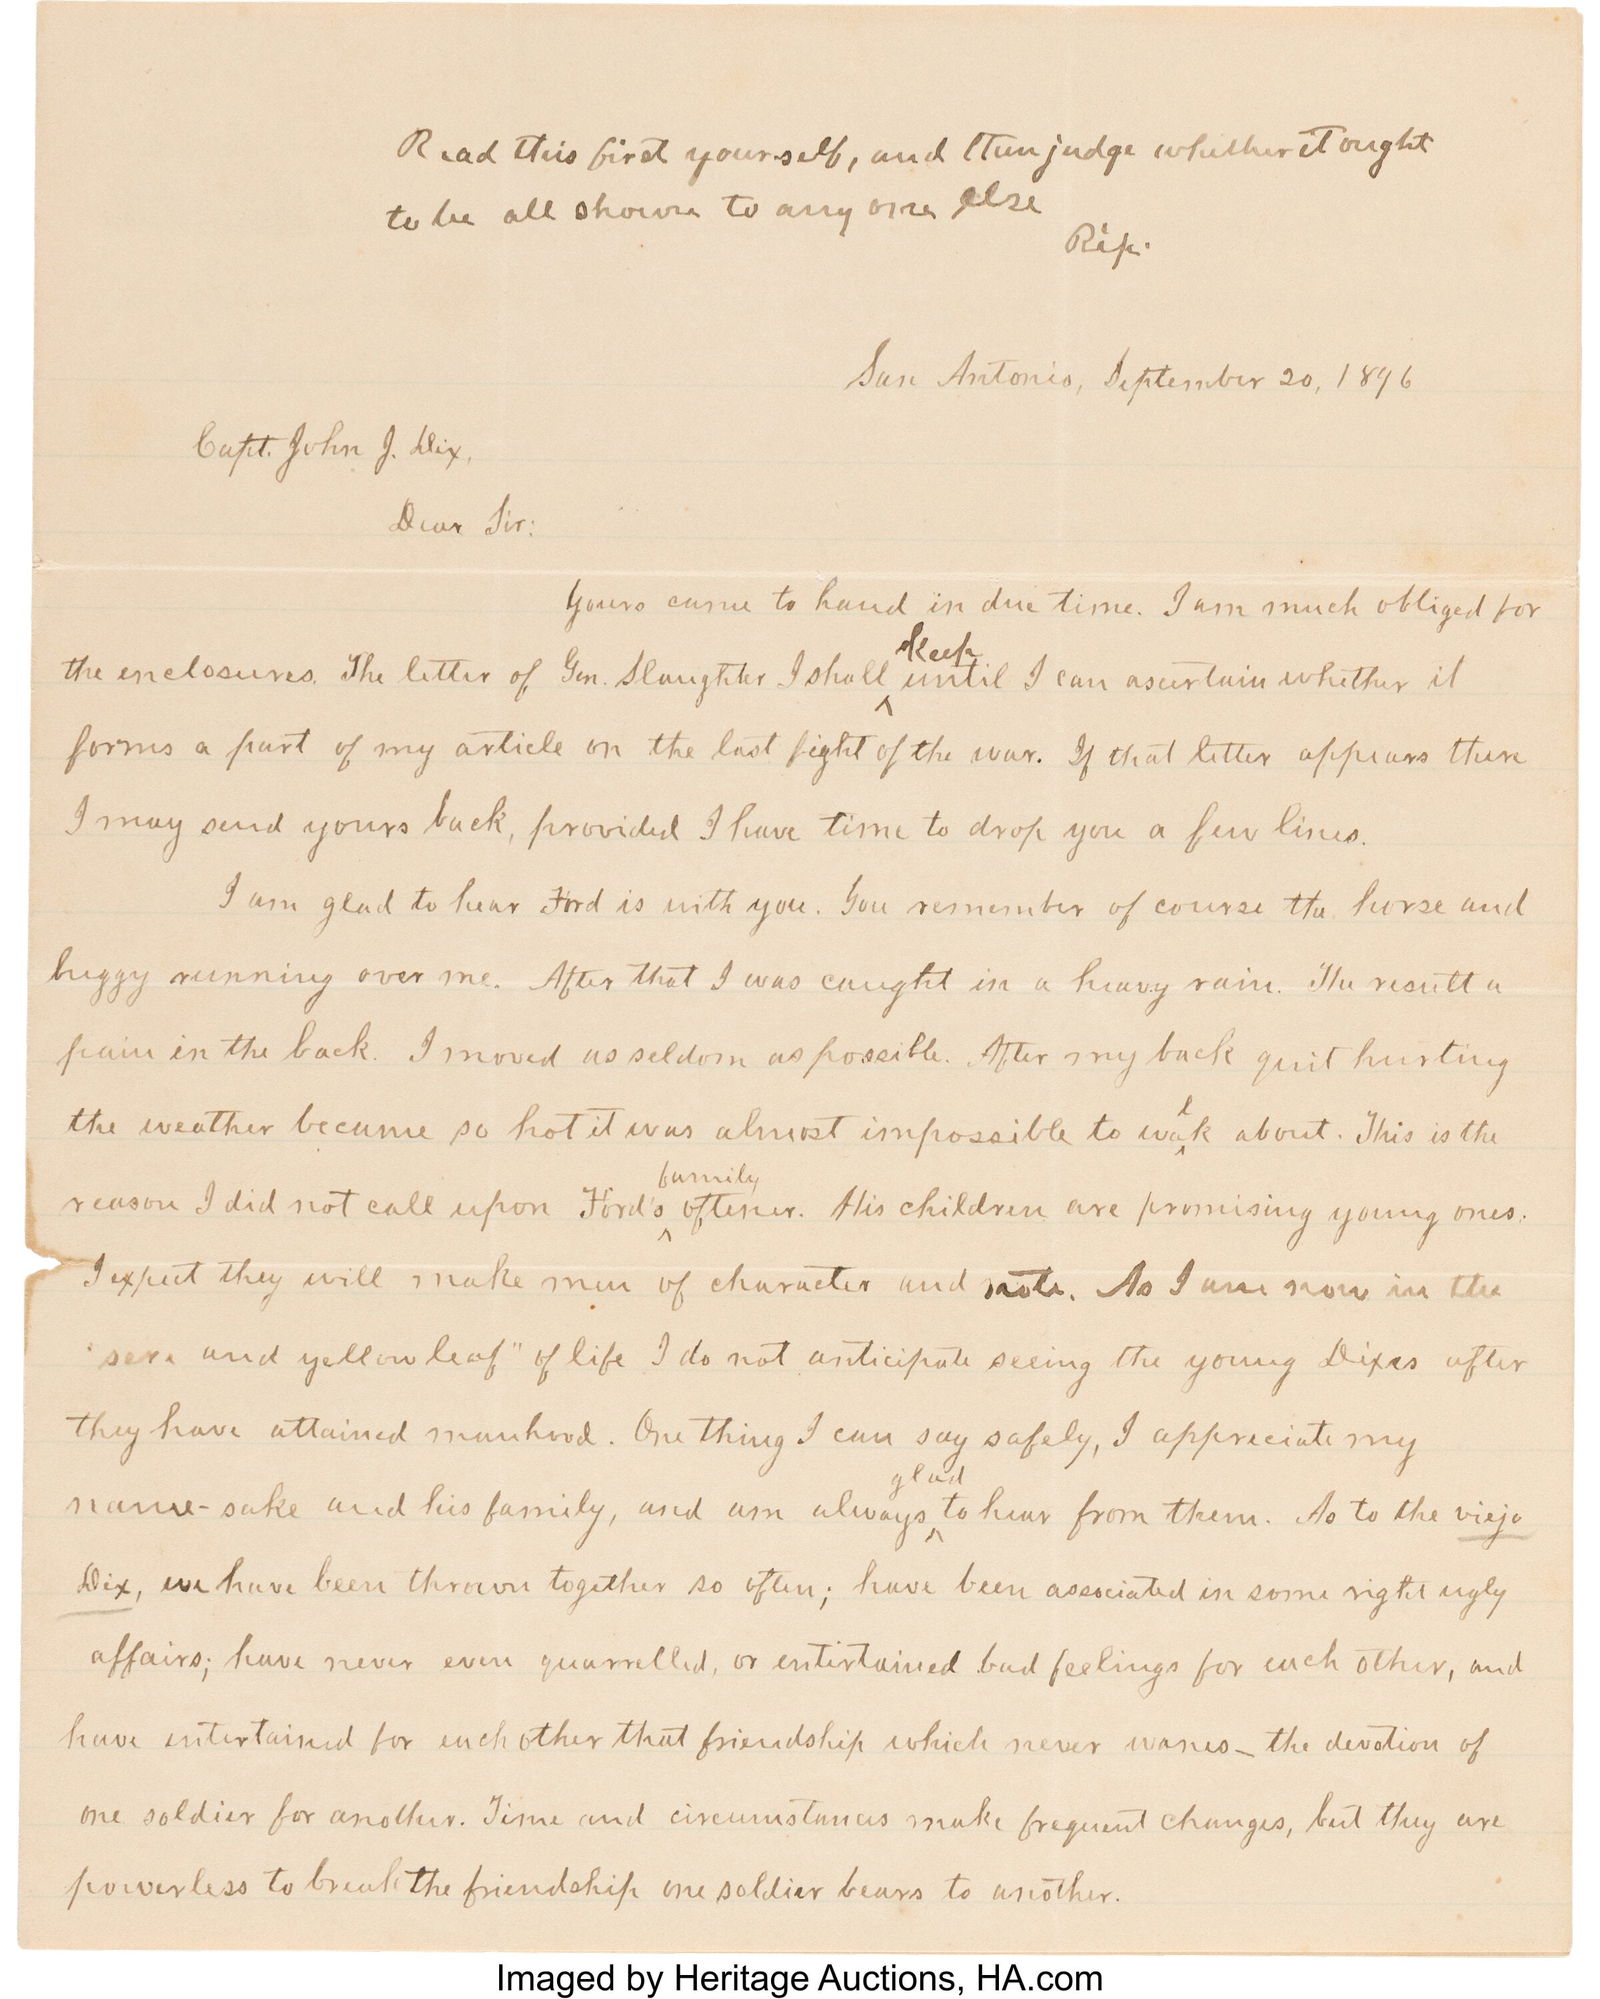 Read this first yourself, and then judge whether it ought
to be all shown to any one else
Rip.
San Antonio, September 20, 1896
Capt. John J. Dix,
Dear Sir:
Yours came to hand in due time. I am much obliged for
the enclosures. The letter of Gen. Slaughter I shall keep until I can ascertain whether it
forms a part of my article on the last fight of the war. If that letter appears there
I may send yours back, provided I have time to drop you a few lines.
I am glad to hear Ford is with you. You remember of course the horse and
buggy running over me. After that I was caught in a heavy rain. The result a
pain in the back. I moved as seldom as possible. After my back quit hurting
the weather became so hot it was almost impossible to walk about. This is the
reason I did not call upon Ford's family oftener. His children are promising young ones.
I expect they will make men of character and note. As I am now in the
"sere and yellow leaf" of life I do not anticipate seeing the young Dixes after
they have attained manhood. One thing I can say safely, I appreciate my
name-sake and his family, and am always glad to hear from them. As to the viejo
Dix, we have been thrown together so often; have been associated in some right ugly
affairs; have never even quarrelled, or entertained bad feelings for each other, and
have entertained for each other that friendship which never wanes - the devotion of
one soldier for another. Time and circumstances make frequent changes, but they are
powerless to break the friendship one soldier bears to another.
Imaged by Heritage Auctions, HA.com